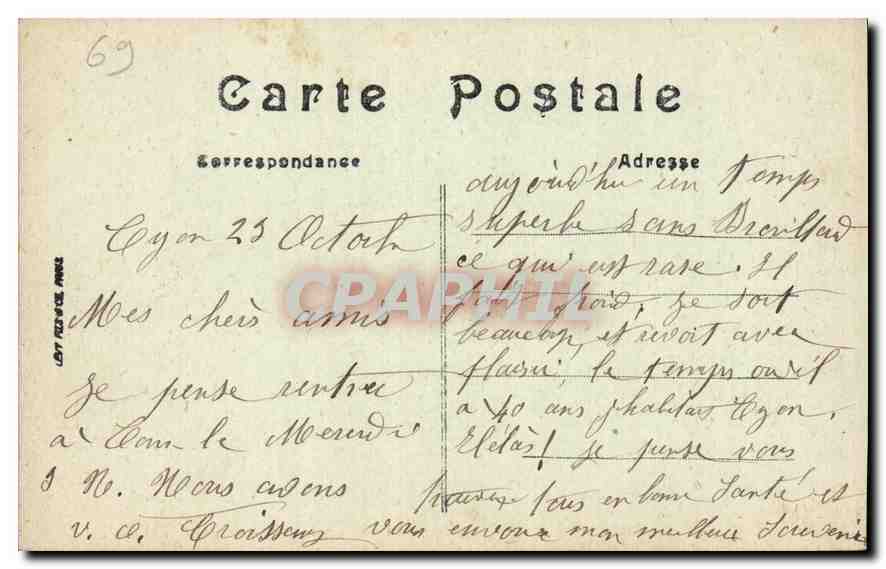 69
Carte Postale
Correspondance
Adresse
LEVY FILS & CIE, PARIS
Lyon 23 Octobr
Mes chers amis
Je pense rentrer
à le Mercredi
9 N. Nous avons
aujourd'hui un temps
superbe sans Brouillard
ce qui est rare. Il
fait froid, je sort
beaucoup, et revoit avec
plaisir, le temps où il
a 40 ans j'habitais Lyon.
Hélas! je pense vous
tous en bonne Santé et
vous envoie mon meilleur Souvenir
CPAPHIL